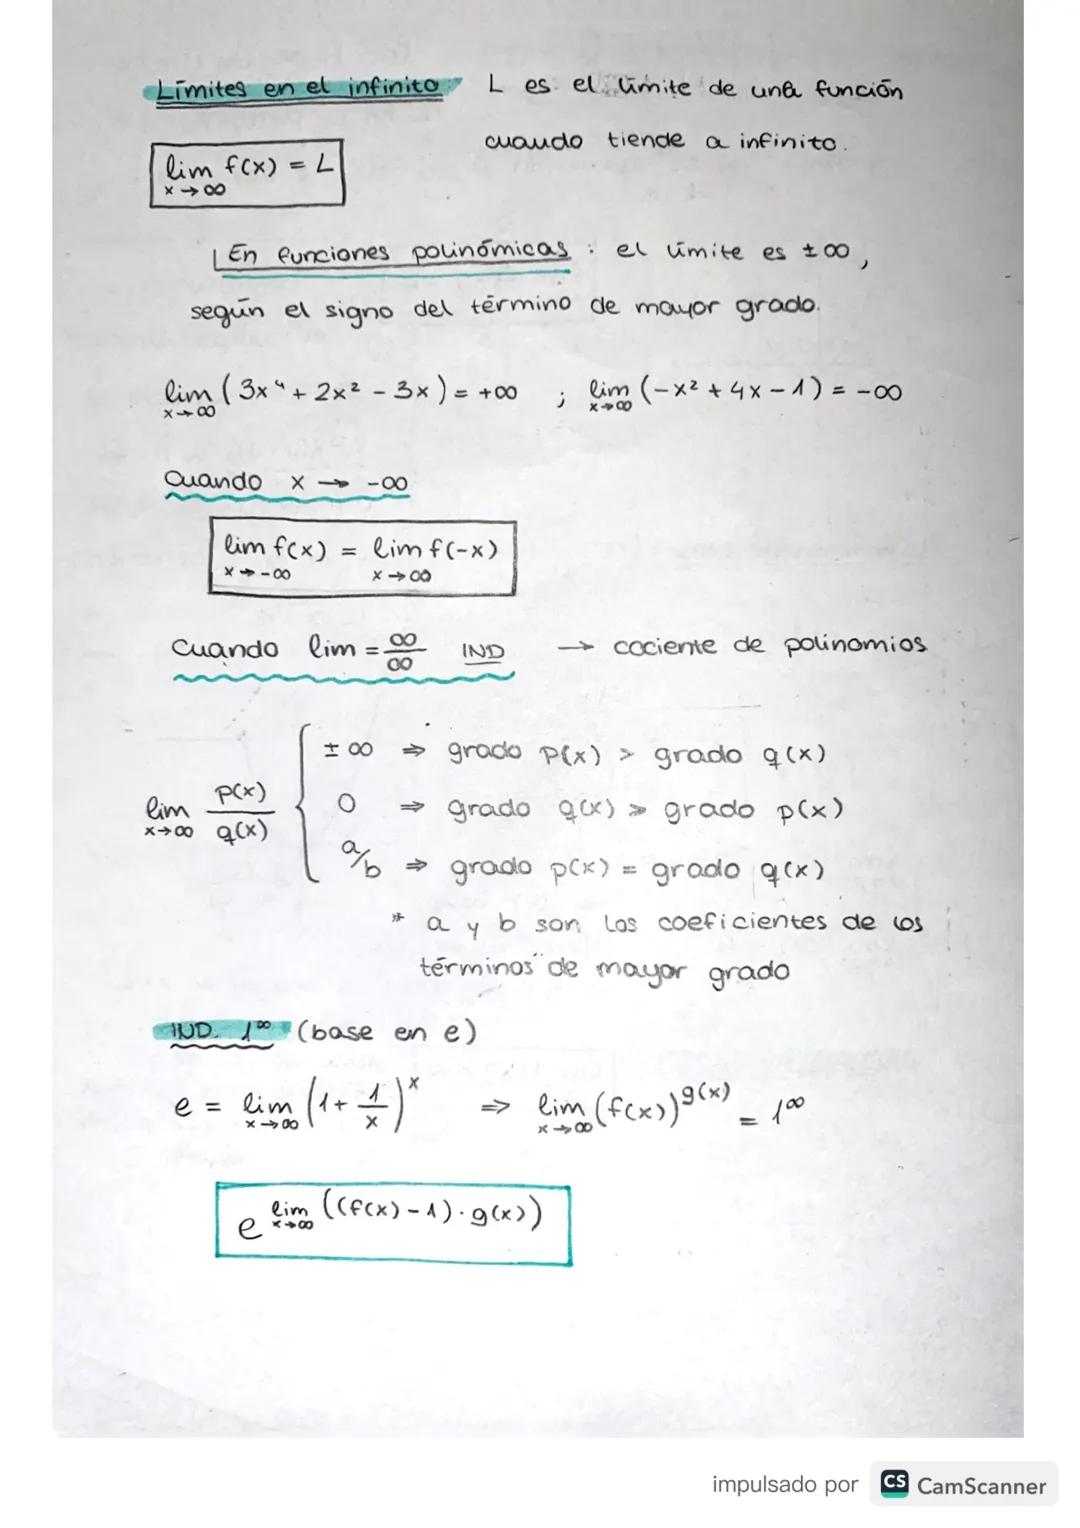 Límites en el infinito L es el límite de una función
cuando tiende a infinito.
lim f(x) = L
x → ∞
En funciones polinómicas : el límite es ± ∞ ,
según el signo del término de mayor grado.
lim ( 3x⁴ + 2x² - 3x ) = +∞ ; lim ( -x² + 4x - 1 ) = -∞
x→∞ x→∞
Cuando x → -∞
lim f(x) = lim f(-x)
x→-∞ x→∞
Cuando lim = ∞/∞ IND → cociente de polinomios
± ∞ ⇒ grado p(x) > grado q(x)
lim p(x)/q(x) 0 ⇒ grado q(x) > grado p(x)
x→∞
a/b ⇒ grado p(x) = grado q(x)
* a y b son los coeficientes de los
términos de mayor grado
IND. 1^∞ (base en e)
e = lim (1 + 1/x)^x ⇒ lim (f(x))^g(x) = 1^∞
x→∞ x→∞
e^lim ((f(x) - 1) · g(x))
x→∞
impulsado por CS CamScanner